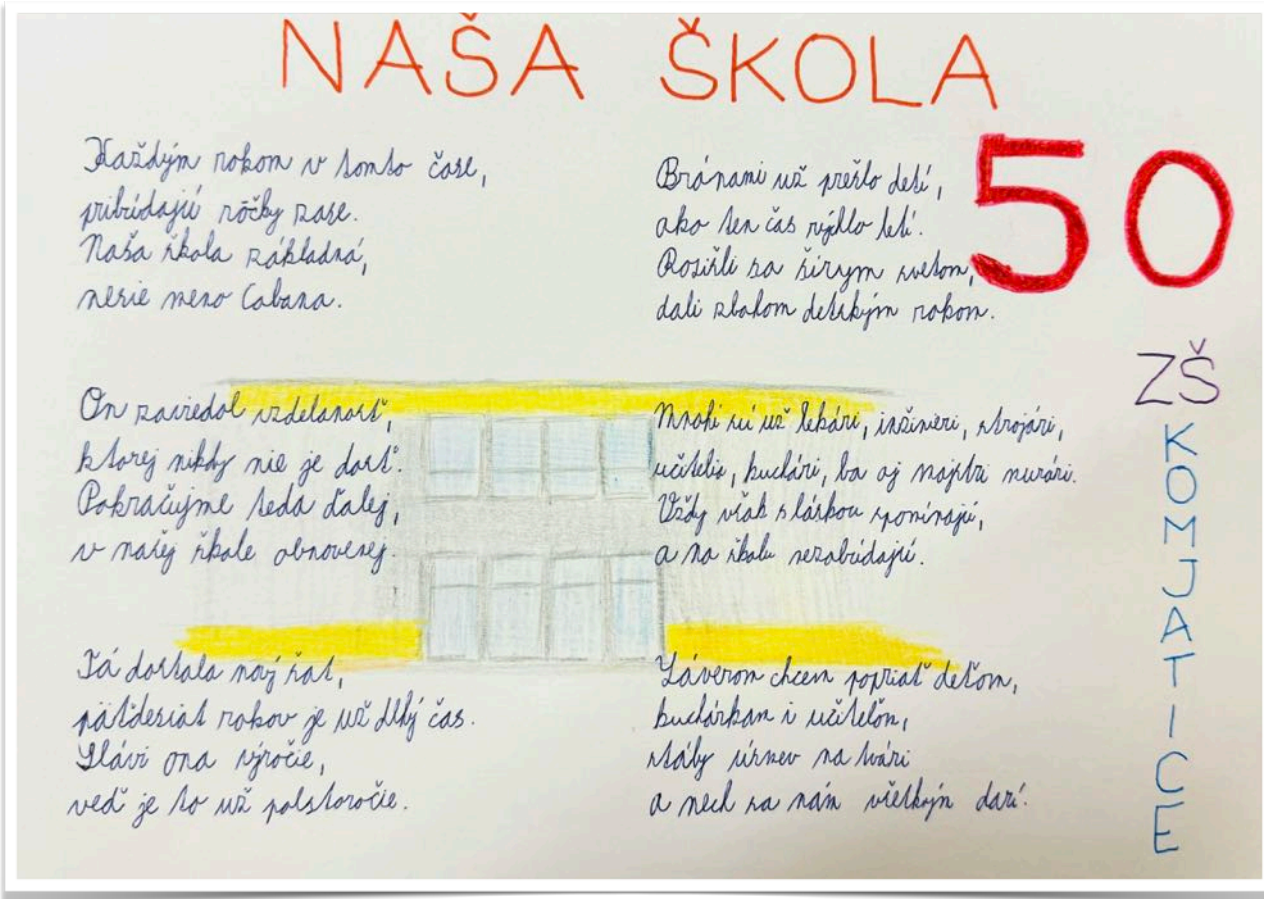 NAŠA ŠKOLA
Každým rokom v tomto čase,
pribúdajú rôčky zase.
Naša škola základná,
nesie meno Cabana.
On zaviedol vzdelanosť,
ktorej nikdy nie je dosť.
Pokračujme teda ďalej,
v našej škole obnovenej.
Tá dostala nový šat,
päťdesiat rokov je už dlhý čas.
Slávi ona výročie,
veď je to už polstoročie.
Bránami už prešlo detí,
ako ten čas rýchlo letí.
Rosišli sa šírym svetom,
dali zbohom detským rokom.
Mnohí sú už lekári, inžinieri, strojári,
učitelia, kuchári, ba aj majstri murári.
Vždy však s láskou spomínajú,
a na školu nezabúdajú.
Záverom chcem popriať deťom,
kuchárkam i učiteľom,
stály úsmev na tvári
a nech sa nám všetkým darí.
50
ZŠ
KOMJATICE